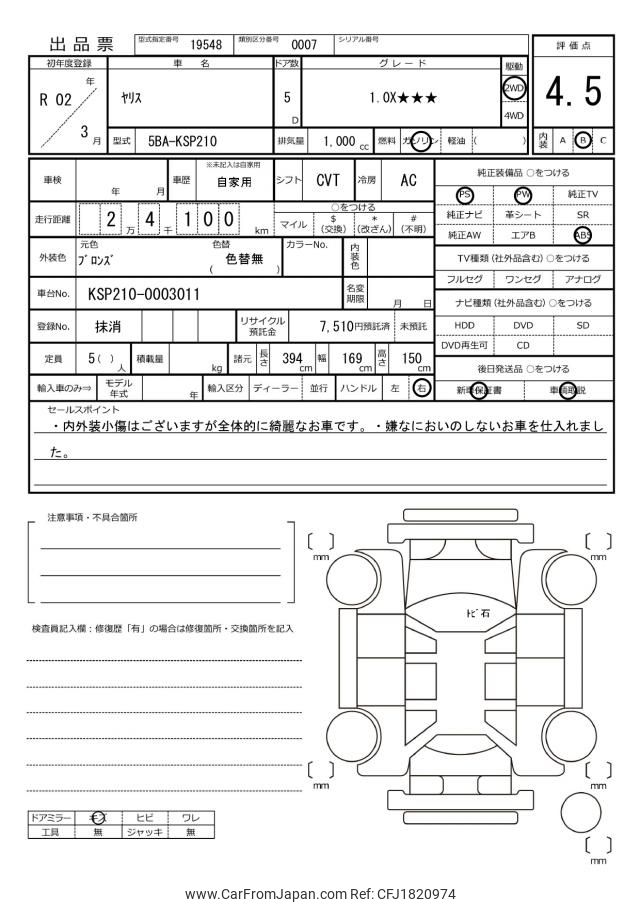 出品票 型式指定番号 19548 類別区分番号 0007 シリアル番号
評価点
4.5
内装 A B C
初年度登録 車名 ドア数 グレード 駆動
R 02 年 3 月
ﾔﾘｽ 5 D 1.0X★★★ 2WD 4WD
型式 5BA-KSP210 排気量 1,000 cc 燃料 ガソリン 軽油 ( )
車検 年 月 車歴 ※未記入は自家用 自家用 シフト CVT 冷房 AC
走行距離 2 万 4 千 1 0 0 km
○をつける
マイル $(交換) *(改ざん) #(不明)
外装色 元色 ﾌﾞﾛﾝｽﾞ 色替 ( 色替無 ) カラーNo. 内装色
車台No. KSP210-0003011 名変期限 月 日
登録No. 抹消 リサイクル預託金 7,510円預託済 未預託
定員 5 ( ) 人 積載量 kg 諸元 長さ 394 cm 幅 169 cm 高さ 150 cm
輸入車のみ⇒ モデル年式 年 輸入区分 ディーラー 並行 ハンドル 左 右
純正装備品 ○をつける
PS PW 純正TV
純正ナビ 革シート SR
純正AW エアB ABS
TV種類 (社外品含む) ○をつける
フルセグ ワンセグ アナログ
ナビ種類 (社外品含む) ○をつける
HDD DVD SD
DVD再生可 CD
後日発送品 ○をつける
新車保証書 車輌取説
セールスポイント
・内外装小傷はございますが全体的に綺麗なお車です。・嫌なにおいのしないお車を仕入れまし
た。
注意事項・不具合箇所
検査員記入欄：修復歴「有」の場合は修復箇所・交換箇所を記入
[ ] mm
[ ] mm
ﾄﾋﾞ石
[ ] mm
[ ] mm
[ ] mm
ドアミラー キズ ヒビ ワレ
工具 無 ジャッキ 無
www.CarFromJapan.com Ref: CFJ1820974